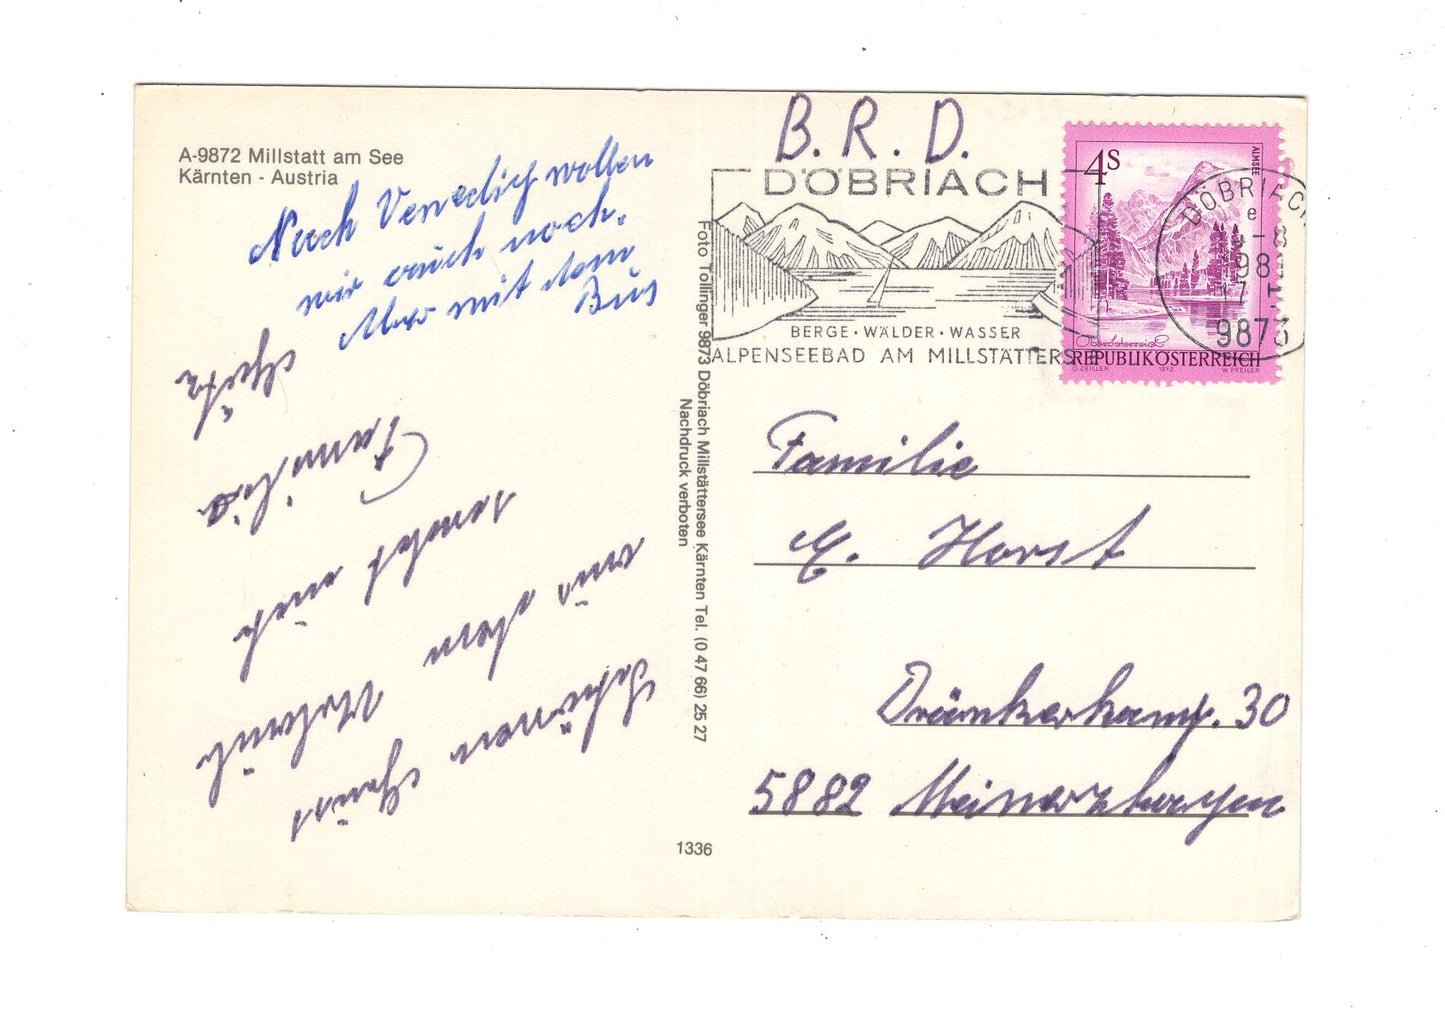 A-9872 Millstatt am See
Kärnten - Austria
Nach Venedig wollen
wir auch noch.
Aber mit dem
Bus
Schönen Gruß
aus dem Urlaub
sendet euch
Familie
Foto Tollinger 9873 Döbriach Millstättersee Kärnten Tel. (0 47 66) 25 27
Nachdruck verboten
1336
B. R. D.
DÖBRIACH
BERGE · WÄLDER · WASSER
ALPENSEEBAD AM MILLSTÄTTERS
4S
ALMSEE
Oberösterreich
REPUBLIK ÖSTERREICH
O. ZEILLER 1973 W. PFEILER
DÖBRIACH
e
9873
Familie
E. Horst
Dränkerkamp. 30
5882 Meinerzhagen